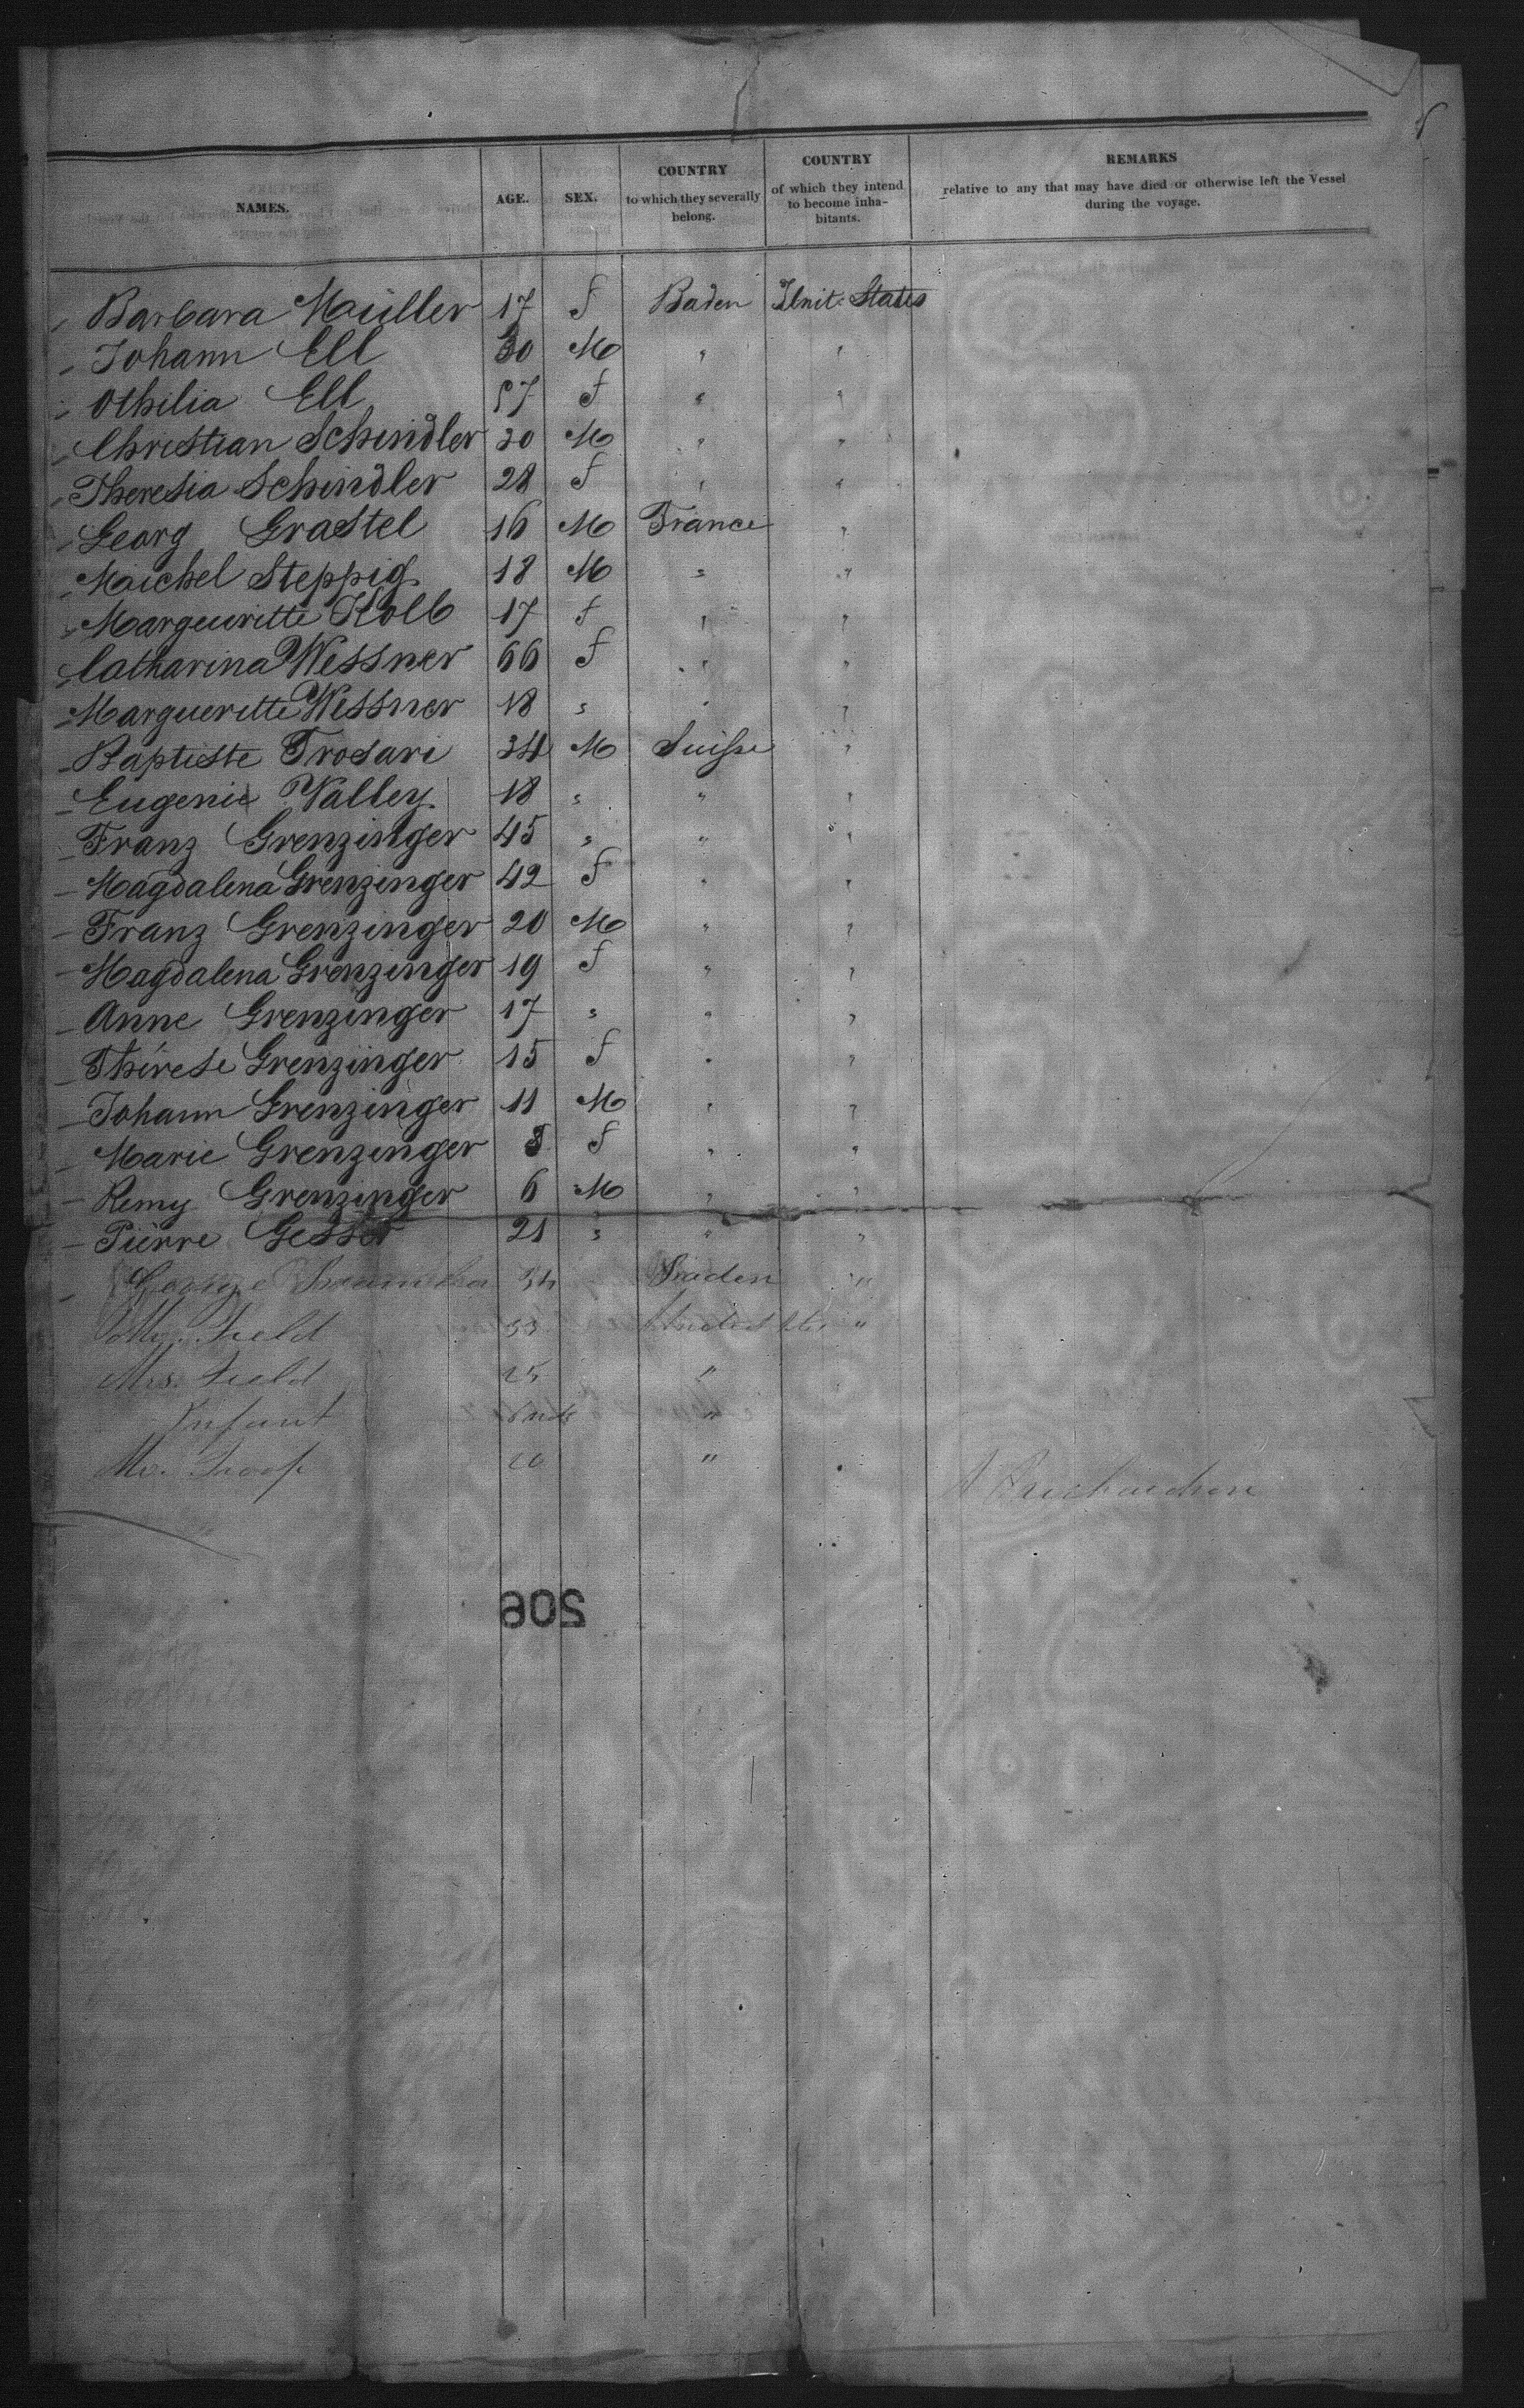 NAMES. AGE. SEX. COUNTRY to which they severally belong. COUNTRY of which they intend to become inhabitants. REMARKS relative to any that may have died or otherwise left the Vessel during the voyage.
Barbara Müller 17 f Baden Unit. States
Johann Ell 30 M " "
Othilia Ell 57 f " "
Christian Schindler 30 M " "
Theresia Schindler 28 f " "
Georg Grastel 16 M France "
Maichel Steppig 18 M " "
Margueritte Kolb 17 f " "
Catharina Wessner 66 f " "
Margueritte Wessner 18 " " "
Baptiste Trosari 34 M Suisse "
Eugenie Valley 18 " " "
Franz Grenzinger 45 " " "
Magdalena Grenzinger 42 f " "
Franz Grenzinger 20 M " "
Magdalena Grenzinger 19 f " "
Anne Grenzinger 17 " " "
Thérese Grenzinger 15 f " "
Johann Grenzinger 11 M " "
Marie Grenzinger 8 f " "
Remy Grenzinger 6 M " "
Piërre Gesser 21 " " "
George Baden "
Mr. Field 33 "
Mrs. Field 25 "
Infant "
Mr. Troop "
508